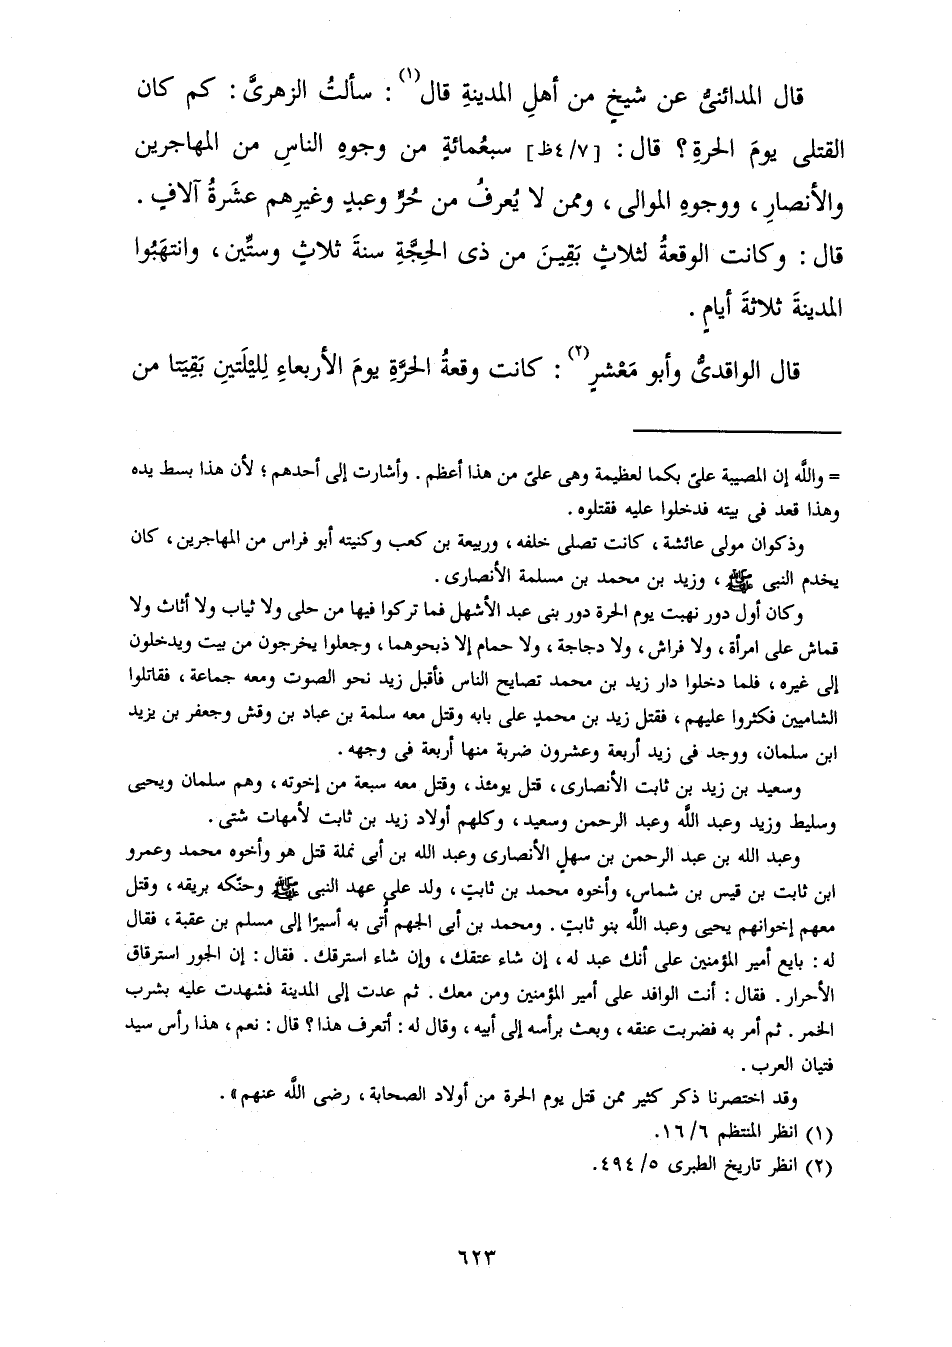 قال المدائنىُّ عن شيخٍ من أهلِ المدينةِ قال(١) : سألتُ الزهرىَّ : كم كان
القتلى يومَ الحرةِ؟ قال : [٤/٧ظ] سبعُمائةٍ من وجوهِ الناسِ من المهاجرين
والأنصارِ ، ووجوهِ الموالى ، وممن لا يُعرفُ من حُرٍّ وعبدٍ وغيرِهم عشَرةُ آلافٍ .
قال : وكانت الوقعةُ لثلاثٍ بَقِينَ من ذى الحِجَّةِ سنةَ ثلاثٍ وستِّين ، وانتهَبُوا
المدينةَ ثلاثةَ أيامٍ .
قال الواقدىُّ وأبو مَعْشرٍ(٢) : كانت وقعةُ الحرَّةِ يومَ الأربعاءِ لِليْلَتينِ بَقِيَتا من
= واللَّه إن المصيبة علىّ بكما لعظيمة وهى علىّ من هذا أعظم . وأشارت إلى أحدهم ؛ لأن هذا بسط يده
وهذا قعد فى بيته فدخلوا عليه فقتلوه .
وذكوان مولى عائشة ، كانت تصلى خلفه ، وربيعة بن كعب وكنيته أبو فراس من المهاجرين ، كان
يخدم النبى ﷺ ، وزيد بن محمد بن مسلمة الأنصارى .
وكان أول دور نهبت يوم الحرة دور بنى عبد الأشهل فما تركوا فيها من حلى ولا ثياب ولا أثاث ولا
قماش على امرأة ، ولا فراش ، ولا دجاجة ، ولا حمام إلا ذبحوهما ، وجعلوا يخرجون من بيت ويدخلون
إلى غيره ، فلما دخلوا دار زيد بن محمد تصايح الناس فأقبل زيد نحو الصوت ومعه جماعة ، فقاتلوا
الشاميين فكثروا عليهم ، فقتل زيد بن محمدٍ على بابه وقتل معه سلمة بن عباد بن وقش وجعفر بن يزيد
ابن سلمان، ووجد فى زيد أربعة وعشرون ضربة منها أربعة فى وجهه .
وسعيد بن زيد بن ثابت الأنصارى ، قتل يومئذ ، وقتل معه سبعة من إخوته ، وهم سلمان ويحيى
وسليط وزيد وعبد اللَّه وعبد الرحمن وسعيد ، وكلهم أولاد زيد بن ثابت لأمهات شتى .
وعبد الله بن عبد الرحمن بن سهلٍ الأنصارى وعبد الله بن أبى نملة قتل هو وأخوه محمد وعمرو
ابن ثابت بن قيس بن شماس، وأخوه محمد بن ثابتٍ ، ولد على عهد النبى ﷺ وحنّكه بريقه ، وقتل
معهم إخوانهم يحيى وعبد اللَّه بنو ثابتٍ . ومحمد بن أبى الجهم أُتى به أسيرًا إلى مسلم بن عقبة ، فقال
له : بايع أمير المؤمنين على أنك عبد له ، إن شاء عتقك ، وإن شاء استرقك . فقال : إن الجور استرقاق
الأحرار . فقال : أنت الوافد على أمير المؤمنين ومن معك . ثم عدت إلى المدينة فشهدت عليه بشرب
الخمر . ثم أمر به فضربت عنقه ، وبعث برأسه إلى أبيه ، وقال له : أتعرف هذا ؟ قال : نعم ، هذا رأس سيد
فتيان العرب .
وقد اختصرنا ذكر كثير ممن قتل يوم الحرة من أولاد الصحابة ، رضى اللَّه عنهم» .
(١) انظر المنتظم ٦/ ١٦.
(٢) انظر تاريخ الطبرى ٥/ ٤٩٤.
٦٢٣